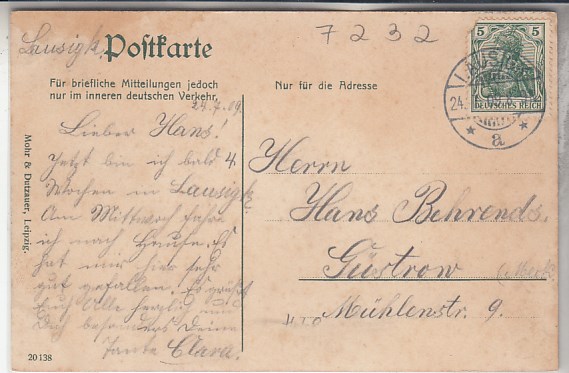 Lausigk
Postkarte
7232
Für briefliche Mitteilungen jedoch
nur im inneren deutschen Verkehr.
Nur für die Adresse
5 5
DEUTSCHES REICH
LAUSIGK
24.
* a *
24.7.09.
Lieber Hans!
Jetzt bin ich bald 4
Wochen in Lausigk.
Am Mittwoch fahre
ich nach Hause. Es
hat mir hier sehr
gut gefallen. Es grüßt
Euch Alle herzlich und
Dich besonders Deine
Tante Clara.
Herrn
Hans Behrends.
Güstrow (Meckl.
Mühlenstr. 9.
Mohr & Dutzauer, Leipzig.
20138